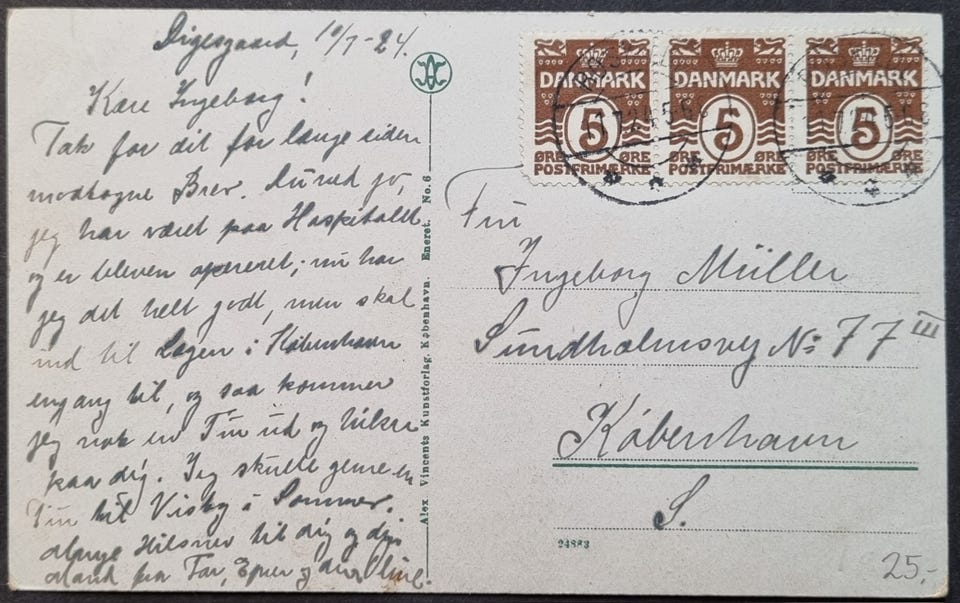 Digesgaard, 10/7-24.
Kære Ingeborg!
Tak for dit for længe siden
modtagne Brev. Du ved jo,
jeg har været paa Hospitalet
og er bleven opereret; nu har
jeg det helt godt, men skal
ind til Lægen i København
engang til, og saa kommer
jeg nok en Tur ud og hilser
paa dig. Jeg skulle gerne en
Tur til Visby i Sommer.
Mange Hilsner til dig og din
Mand fra Far, og
Alex Vincents Kunstforlag. København. Eneret. No. 6
DANMARK
5
ØRE ØRE
POSTFRIMÆRKE
DANMARK
5
ØRE ØRE
POSTFRIMÆRKE
DANMARK
5
ØRE ØRE
POSTFRIMÆRKE
Fru
Ingeborg Müller
Sundholmsvej No 77 III
København
S.
24883
25,-